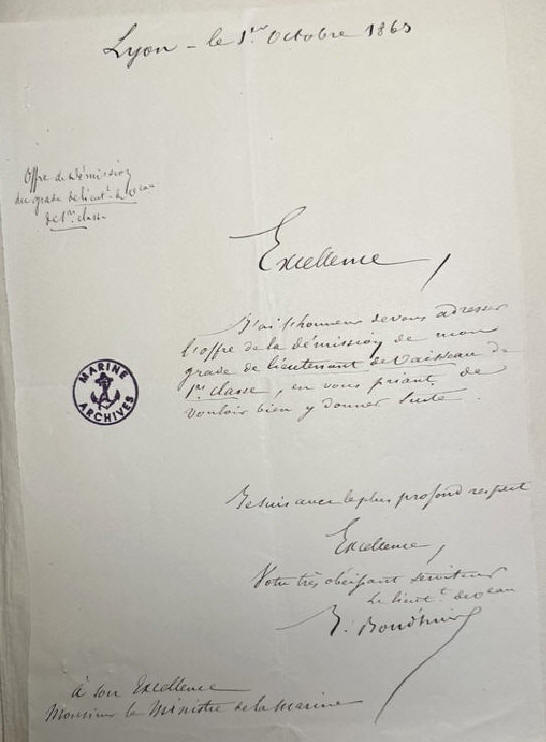 Lyon - le 1er Octobre 1865
Offre de démission
du grade de lieutt de veau
de 1re classe
Excellence,
J'ai l'honneur de vous adresser
l'offre de la démission de mon
grade de lieutenant de Vaisseau de
1re classe, en vous priant de
vouloir bien y donner suite.
MARINE
ARCHIVES
Je suis avec le plus profond respect
Excellence,
Votre très obéissant serviteur
Le lieutt de veau
à son Excellence
Monsieur le Ministre de la Marine